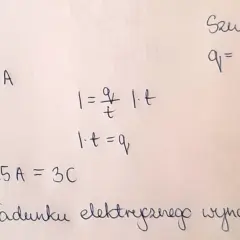 Szu
q =
A
I = q/t |·t
I·t = q
5A = 3C
adunku elektrycznego wyno